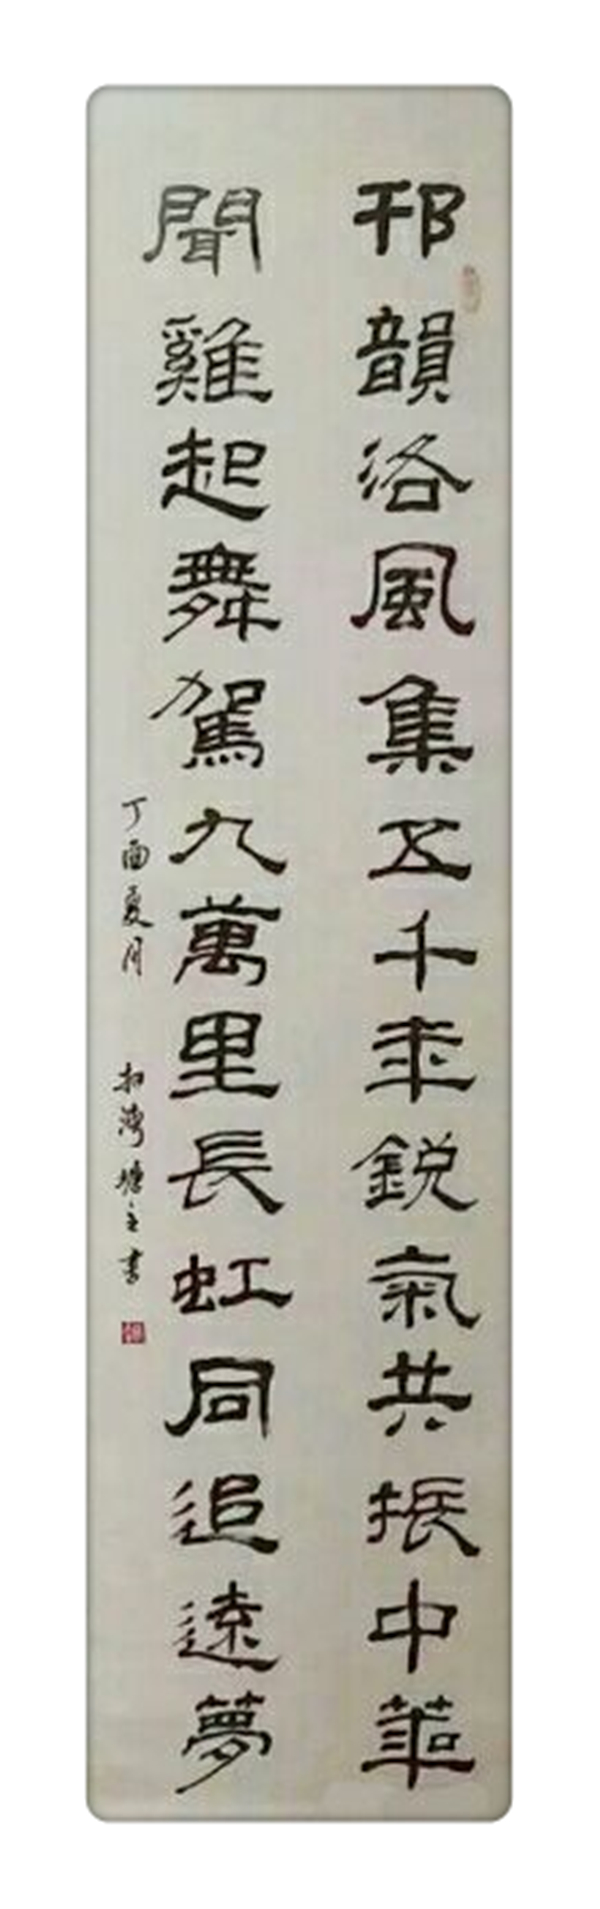 邗韻洛風集五千年銳氣共振中華
聞雞起舞駕九萬里長虹同追遠夢
丁酉夏月
灣塘主書